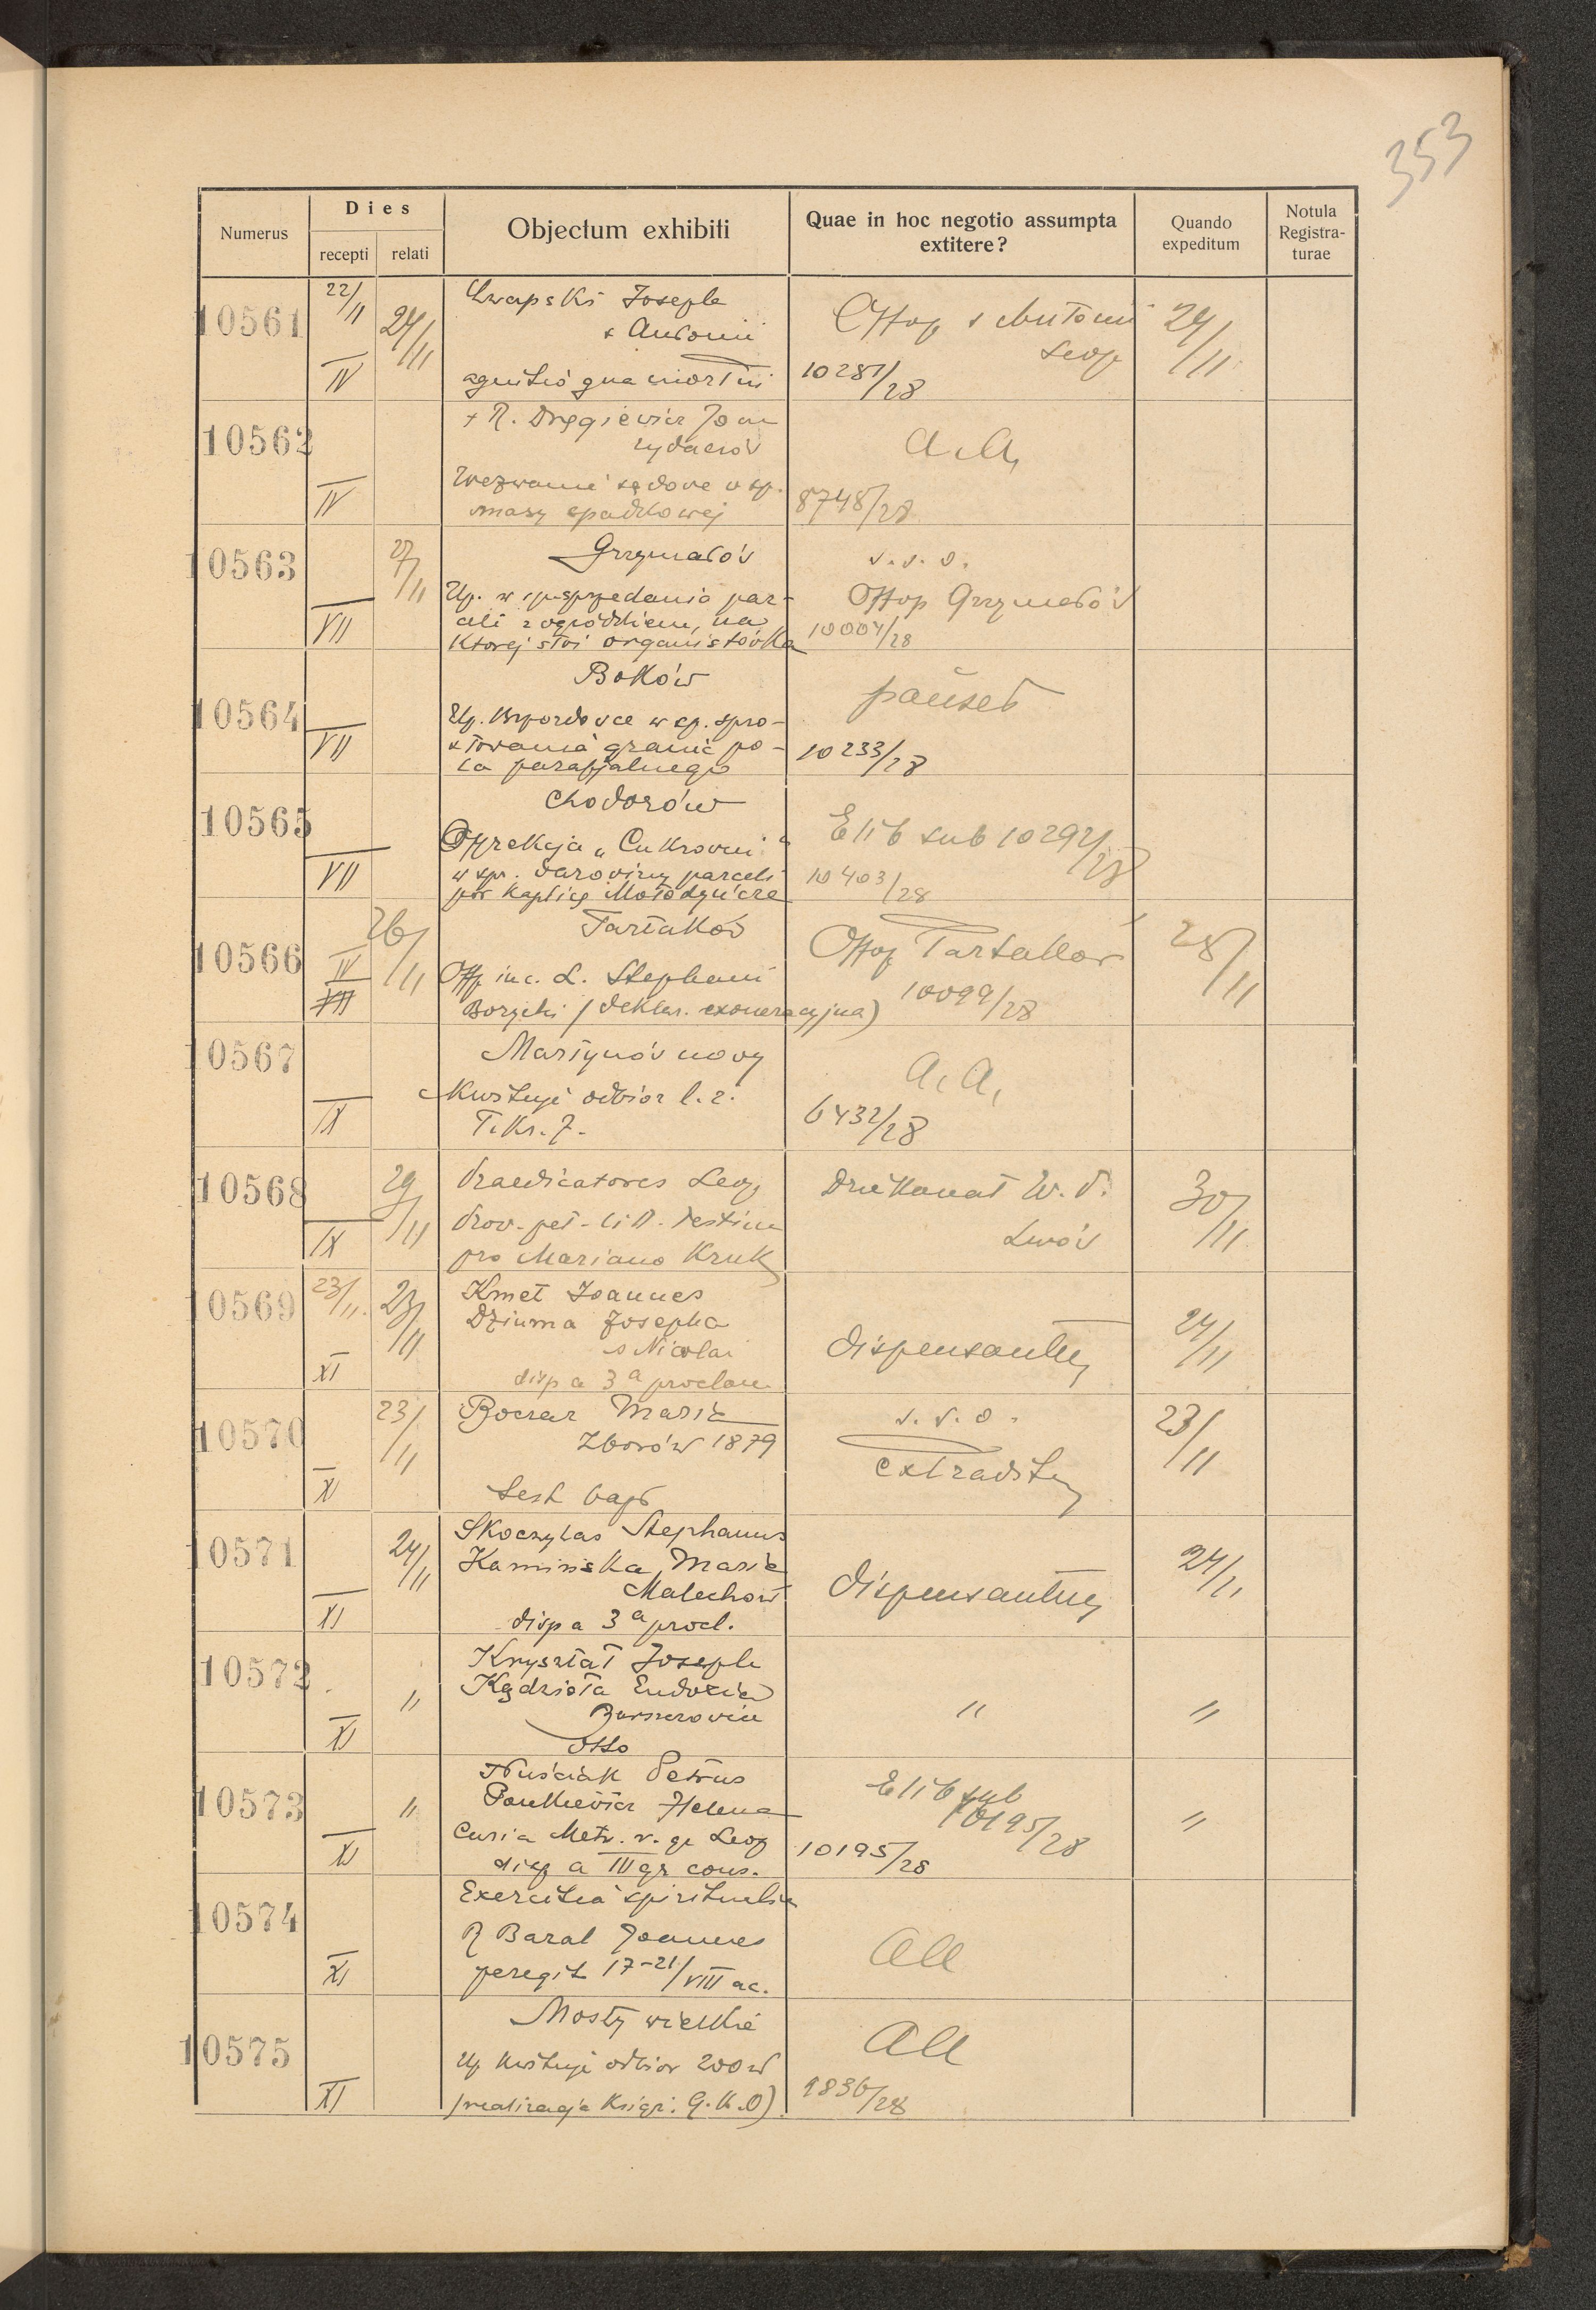 353
Numerus
Dies
recepti
relati
Objectum exhibiti
Quae in hoc negotio assumpta
extitere?
Quando
expeditum
Notula
Registra-
turae
10561
22/11
24/11
IV
Joseph
s Antonii
qua mortui
Offop s Antonii
Leop
10281/28
24/11
10562
IV
+ R. Dręgiewicz Joan
Żydaczów
Wezwanie sądowe w sp.
masy spadkowej
a. a,
8748/28
10563
27/11
VII
Grzymałów
Up. w sp. sprzedania par-
celi z ogródkiem, na
której stoi organistówka
v. s. o.
Offop Grzymałów
10004/28
10564
VII
Boków
Up. w sp. spro-
stowania granic po-
la parafjalnego
10233/28
10565
VII
Chodorów
Dyrekcja „Cukrowni"
w spr. darowizny parceli
pod kaplicę Mołodyńcze
Elib sub 10292/28
10403/28
10566
26/11
IV
VII
Tartaków
Off inc. L. Stephani
Borycki (deklar. exoneracyjna)
Offop Tartaków
10099/28
28/11
10567
IX
Martynów nowy
Kwituje odbiór l. z.
T. Kr. 7.
a. a,
6432/28
10568
29/11
IX
Praedicatores Leop
Prov. pet. litt. testim
pro Mariano Kruk
Dziekanat W. P.
Lwów
30/11
10569
23/11.
23/11
XI
Kmet Joannes
Dziuma Josepha
s Nicolai
disp a 3ª proclam
dispensantur
24/11
10570
23/11
XI
Boczar Maria
Zborów 1879
test bapt
v. s. o.
extraditur
23/11
10571
24/11
XI
Skoczylas Stephanus
Kamińska Maria
Malechów
disp a 3ª procl.
dispensantur
24/11
10572
"
XI
Kryształ Joseph
Kądzioła Eudoxia
Barszczowice
dtto
"
"
10573
"
XI
Petrus
Pankiewicz Helena
Curia Metr. r. gr Leop
disp a III gr cons.
Elib sub
10195/28
10195/28
"
10574
XI
Exercitia spiritualia
R Baral Joannes
peregit 17-21/VIII ac.
aa
10575
XI
Mosty wielkie
Up kwituje odbiór 200 zł
(realizacja Książ. G.K.O).
aa
9836/28